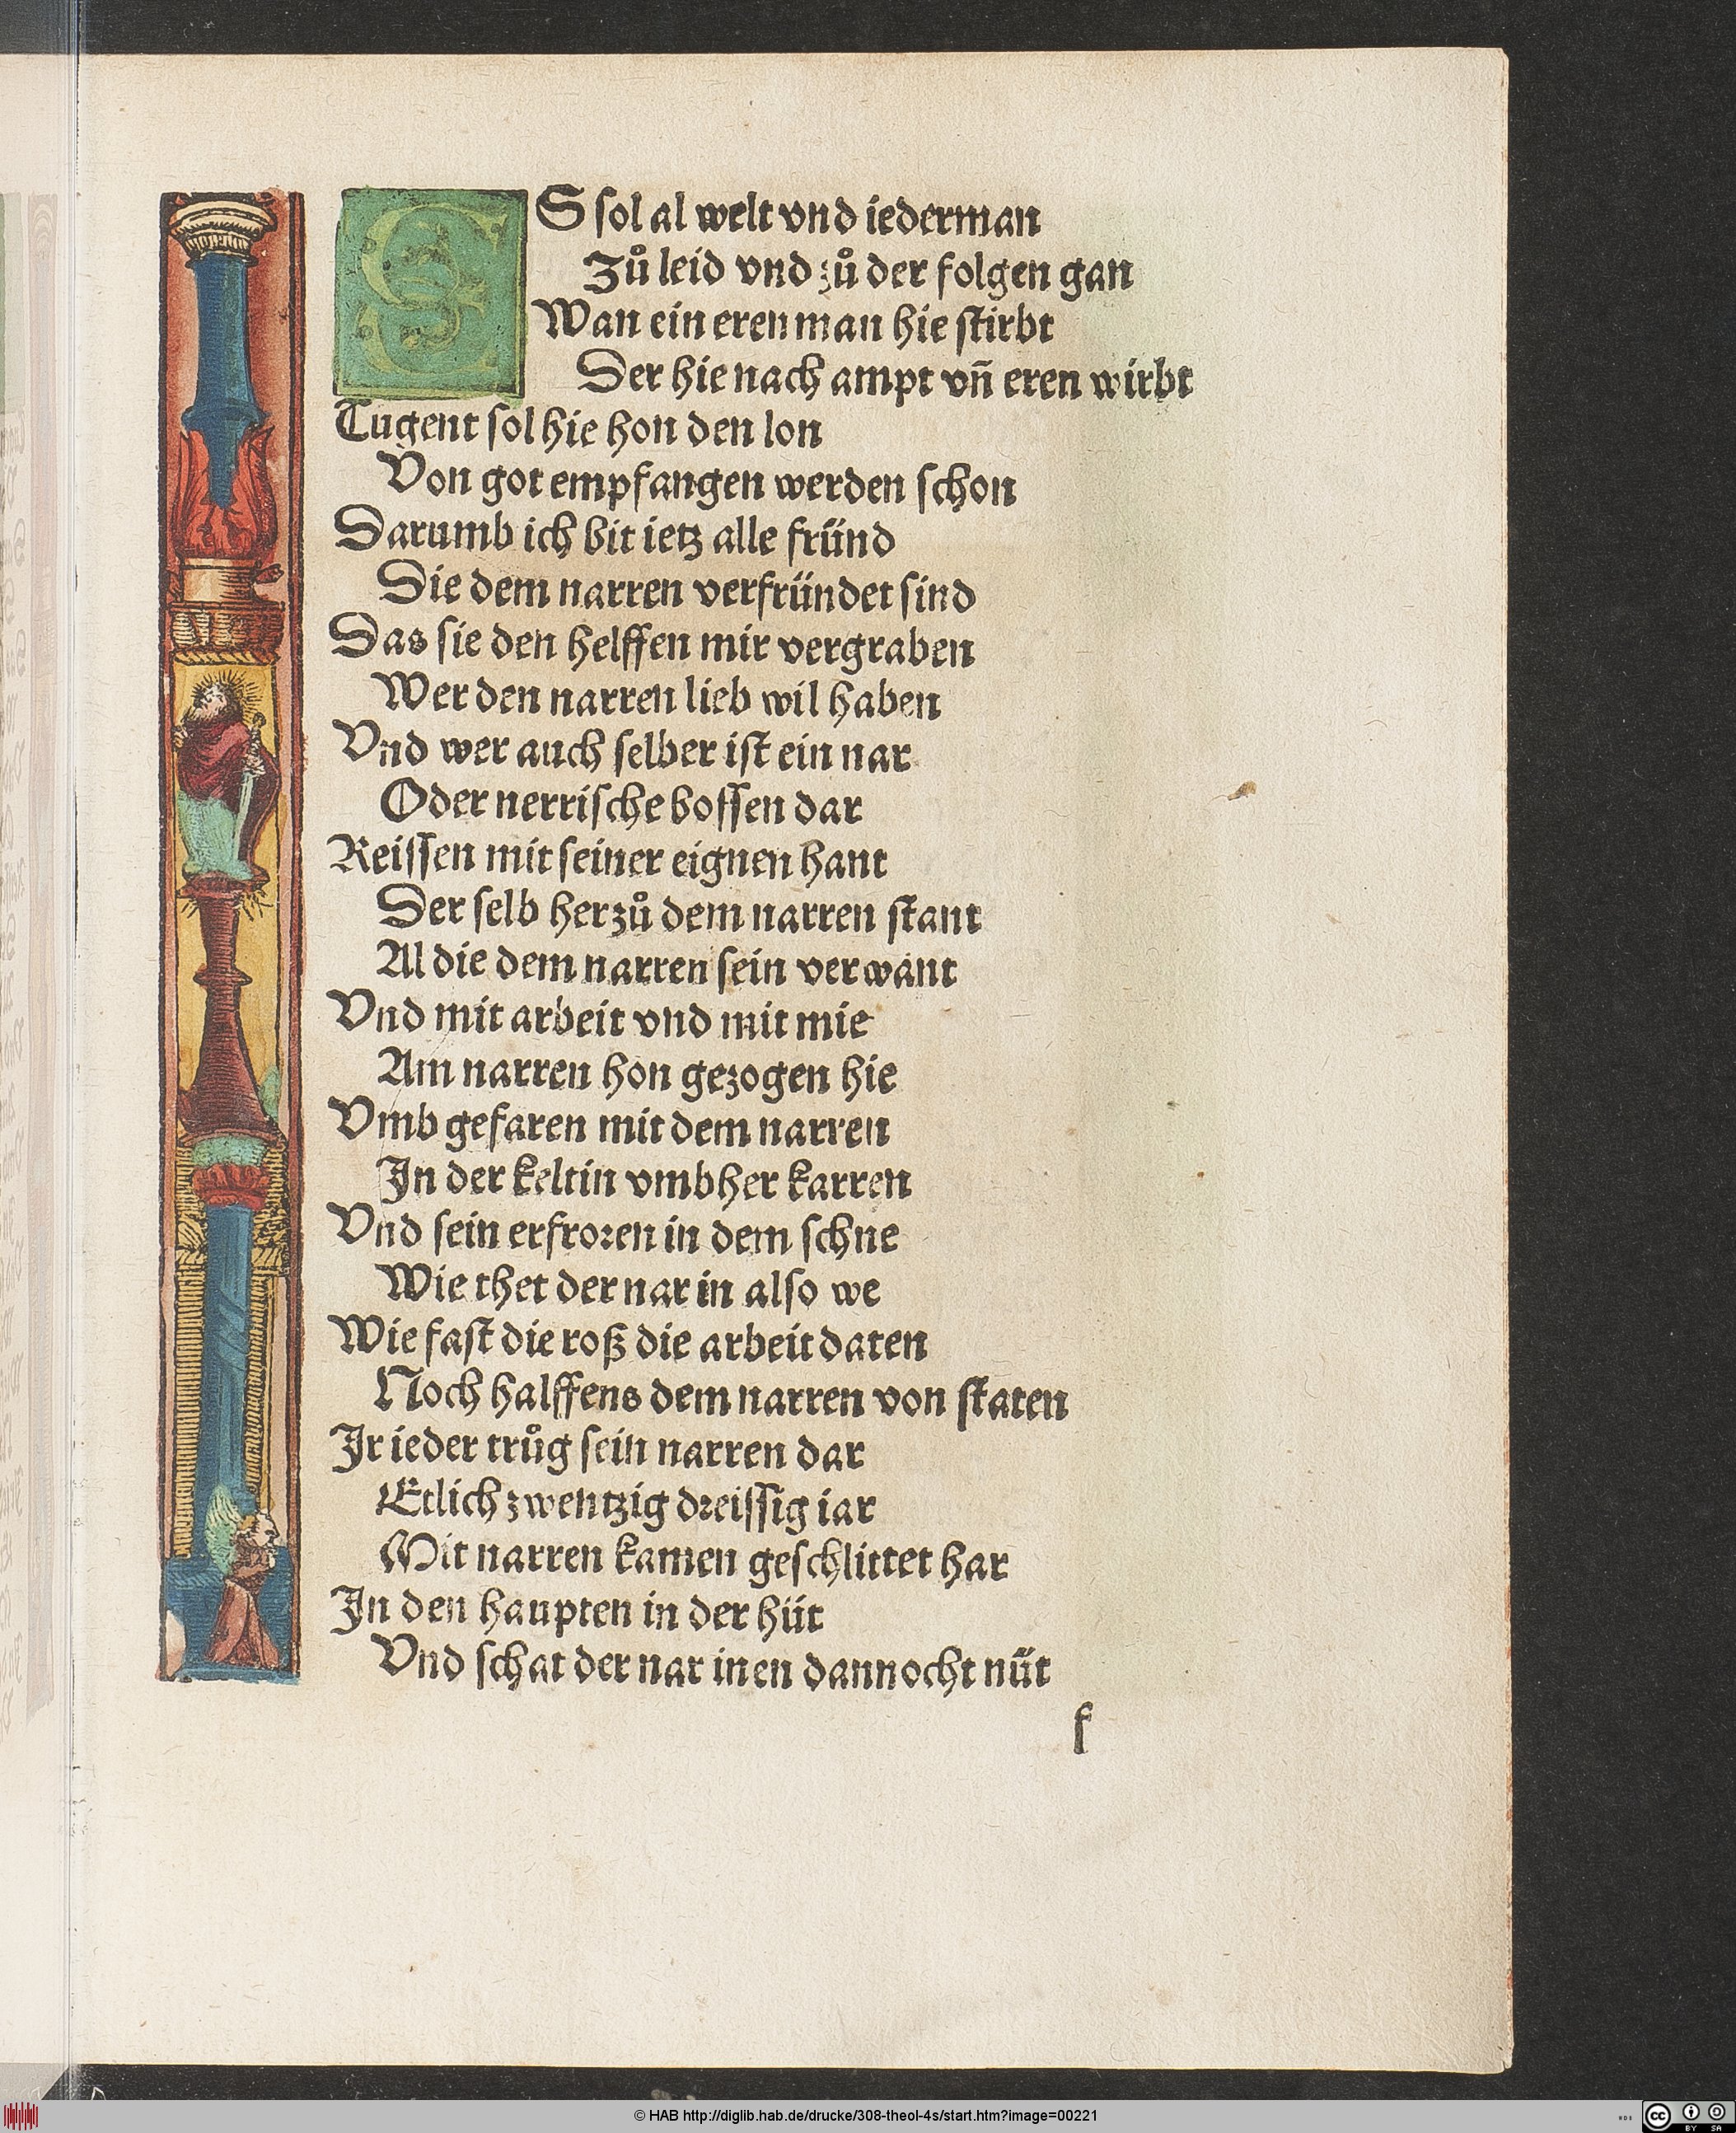 ES sol al welt vnd iederman
Zů leid vnd zů der folgen gan
Wan ein eren man hie stirbt
Der hie nach ampt vñ eren wirbt
Tugent sol hie hon den lon
Von got empfangen werden schon
Darumb ich bit ietz alle fründ
Die dem narren verfründet sind
Das sie den helffen mir vergraben
Wer den narren lieb wil haben
Vnd wer auch selber ist ein nar
Oder nerrische bossen dar
Reissen mit seiner eignen hant
Der selb herzů dem narren stant
Al die dem narren sein verwant
Vnd mit arbeit vnd mit mie
Am narren hon gezogen hie
Vmb gefaren mit dem narren
In der keltin vmbher karren
Vnd sein erfroren in dem schne
Wie thet der nar in also we
Wie fast die roß die arbeit daten
Noch halffens dem narren von staten
Ir ieder trůg sein narren dar
Etlich zwentzig dreissig iar
Mit narren kamen geschlittet har
In den haupten in der hüt
Vnd schat der nar inen dannocht nüt
f
© HAB http://diglib.hab.de/drucke/308-theol-4s/start.htm?image=00221
cc BY SA